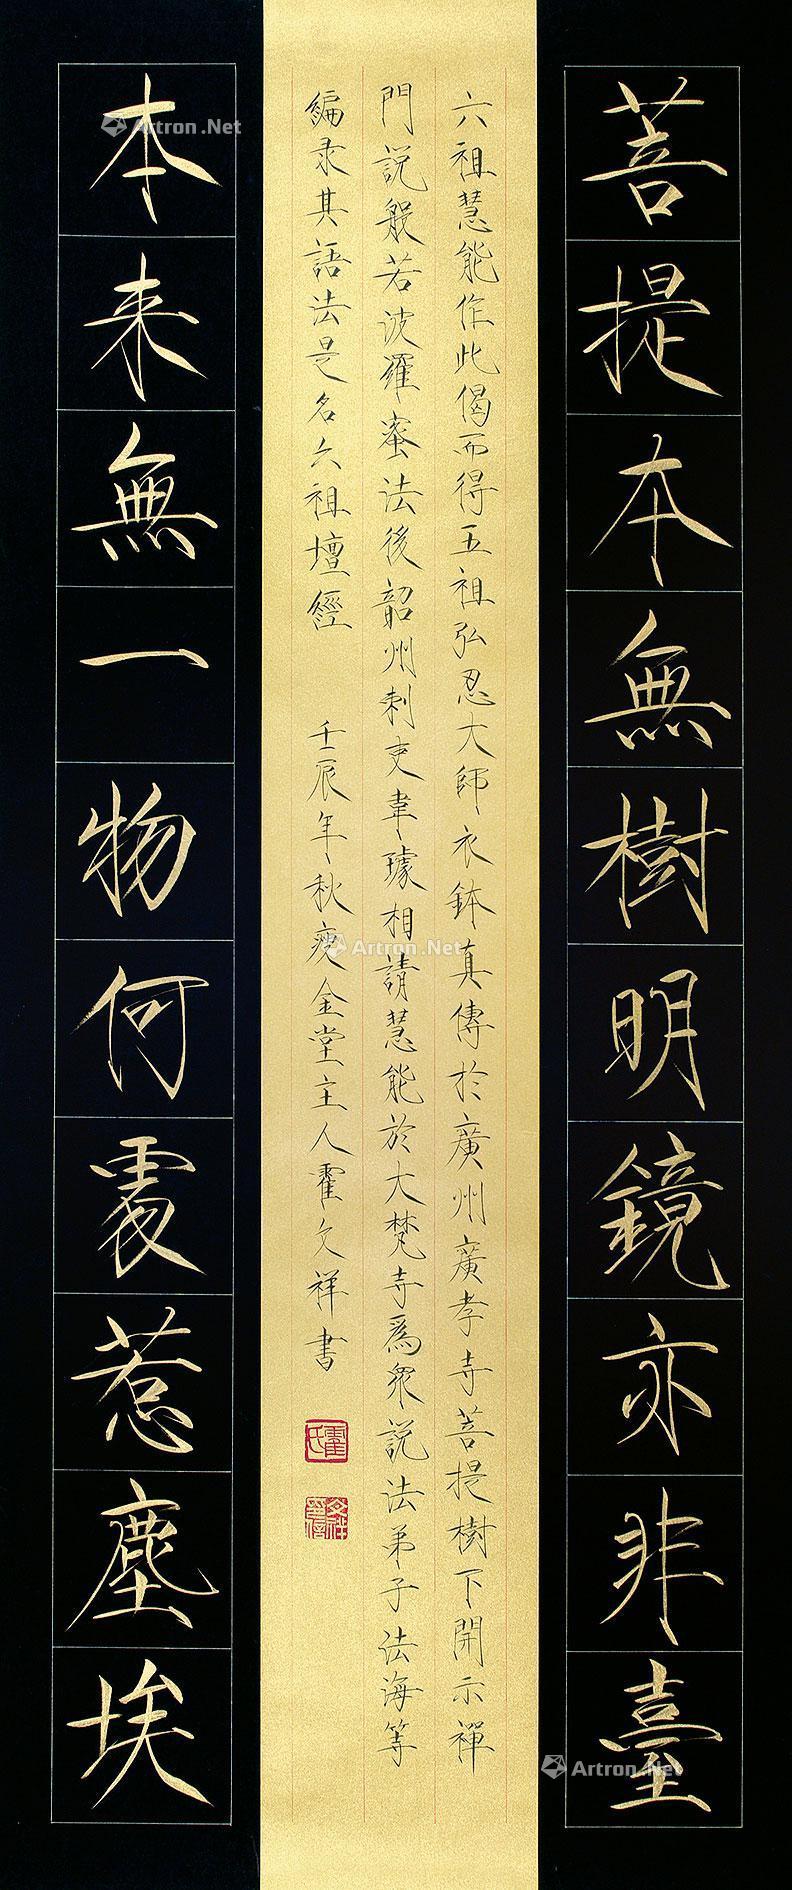 菩提本無樹明鏡亦非臺
六祖慧能作此偈而得五祖弘忍大師衣鉢真傳於廣州廣孝寺菩提樹下開示禪
門説般若波羅蜜法後韶州刺吏韋璩相請慧能於大梵寺爲衆説法弟子法海等
編录其語法是名六祖壇經 壬辰年秋瘦金堂主人霍文祥書
霍氏
文祥
本来無一物何處惹塵埃
Artron.Net
Artron.Net
Artron.Net